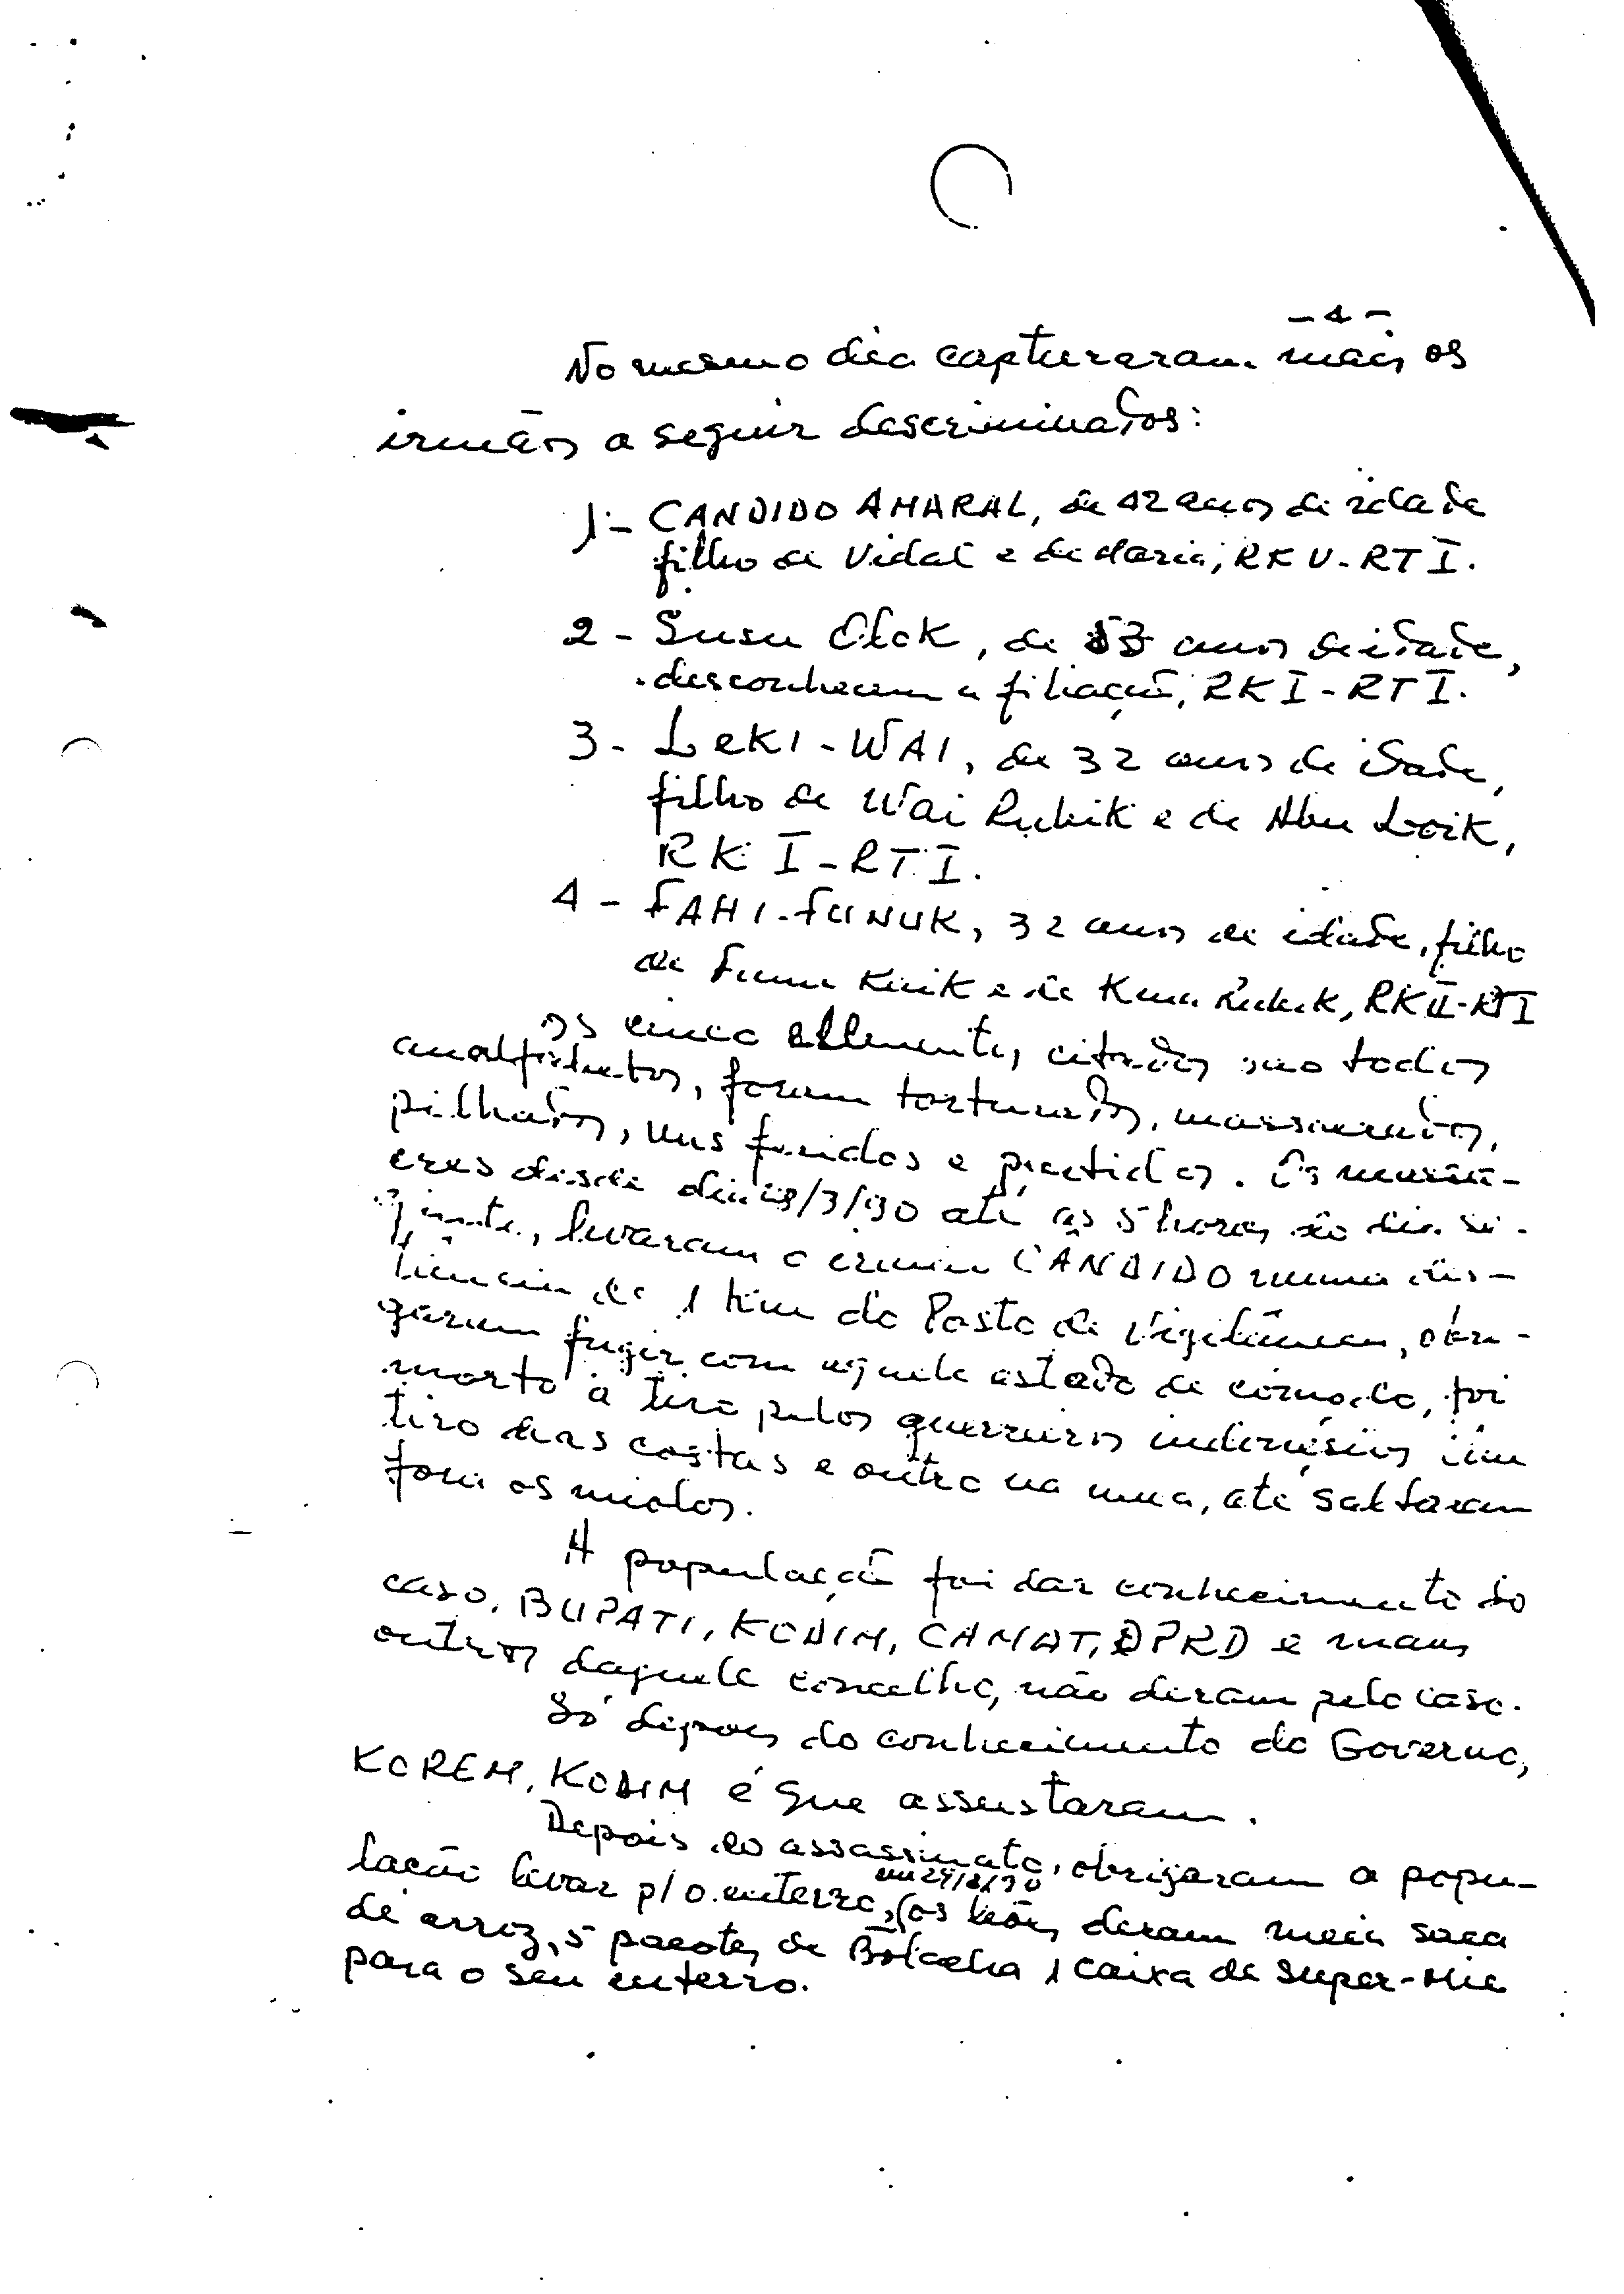 - 4 -
No mesmo dia capturaram mais os
irmãos a seguir descriminados:
1 - CANDIDO AMARAL, de 42 anos de idade
filho de Vidal e de Maria, RK V - RT I.
2 - Susu Olok, de 53 anos de idade,
desconhecem a filiação, RK I - RT I.
3 - LEKI - WAI, de 32 anos de idade,
filho de Wai Rubik e de Abu Loik,
RK I - RT I.
4 - FAHI - FUNUK, 32 anos de idade, filho
de Funu Kuik e de Rubik, RK II - RT I
Os cinco ellementos citados são todos
analfabetos, foram torturados, massacrados,
pilhados, uns feridos e partidos. Os
desde dia 28/3/90 até as 5 horas do dia se-
guinte, levaram o irmão CÂNDIDO numa dis-
tância de 1 km do Posto de Vigilância, obri-
garam fugir com aquele estado de, foi
morto à tiro pelos guerreiros indonésios um
tiro nas costas e outro na nuca, até saltaram
fora os miolos.
A população foi dar conhecimento do
caso, BUPATI, KODIM, CAMAT, DPRD e mais
outros daquele concelho, não deram pelo caso.
Só depois do conhecimento do Governo,
KOREM, KODIM é que assustaram.
Depois do assassinato, obrigaram a popu-
em 29/3/90
lação levar p/ o enterro, (os deram meia saca
de arroz, 5 pacotes de Bolacha 1 caixa de super-mie
para o seu enterro.